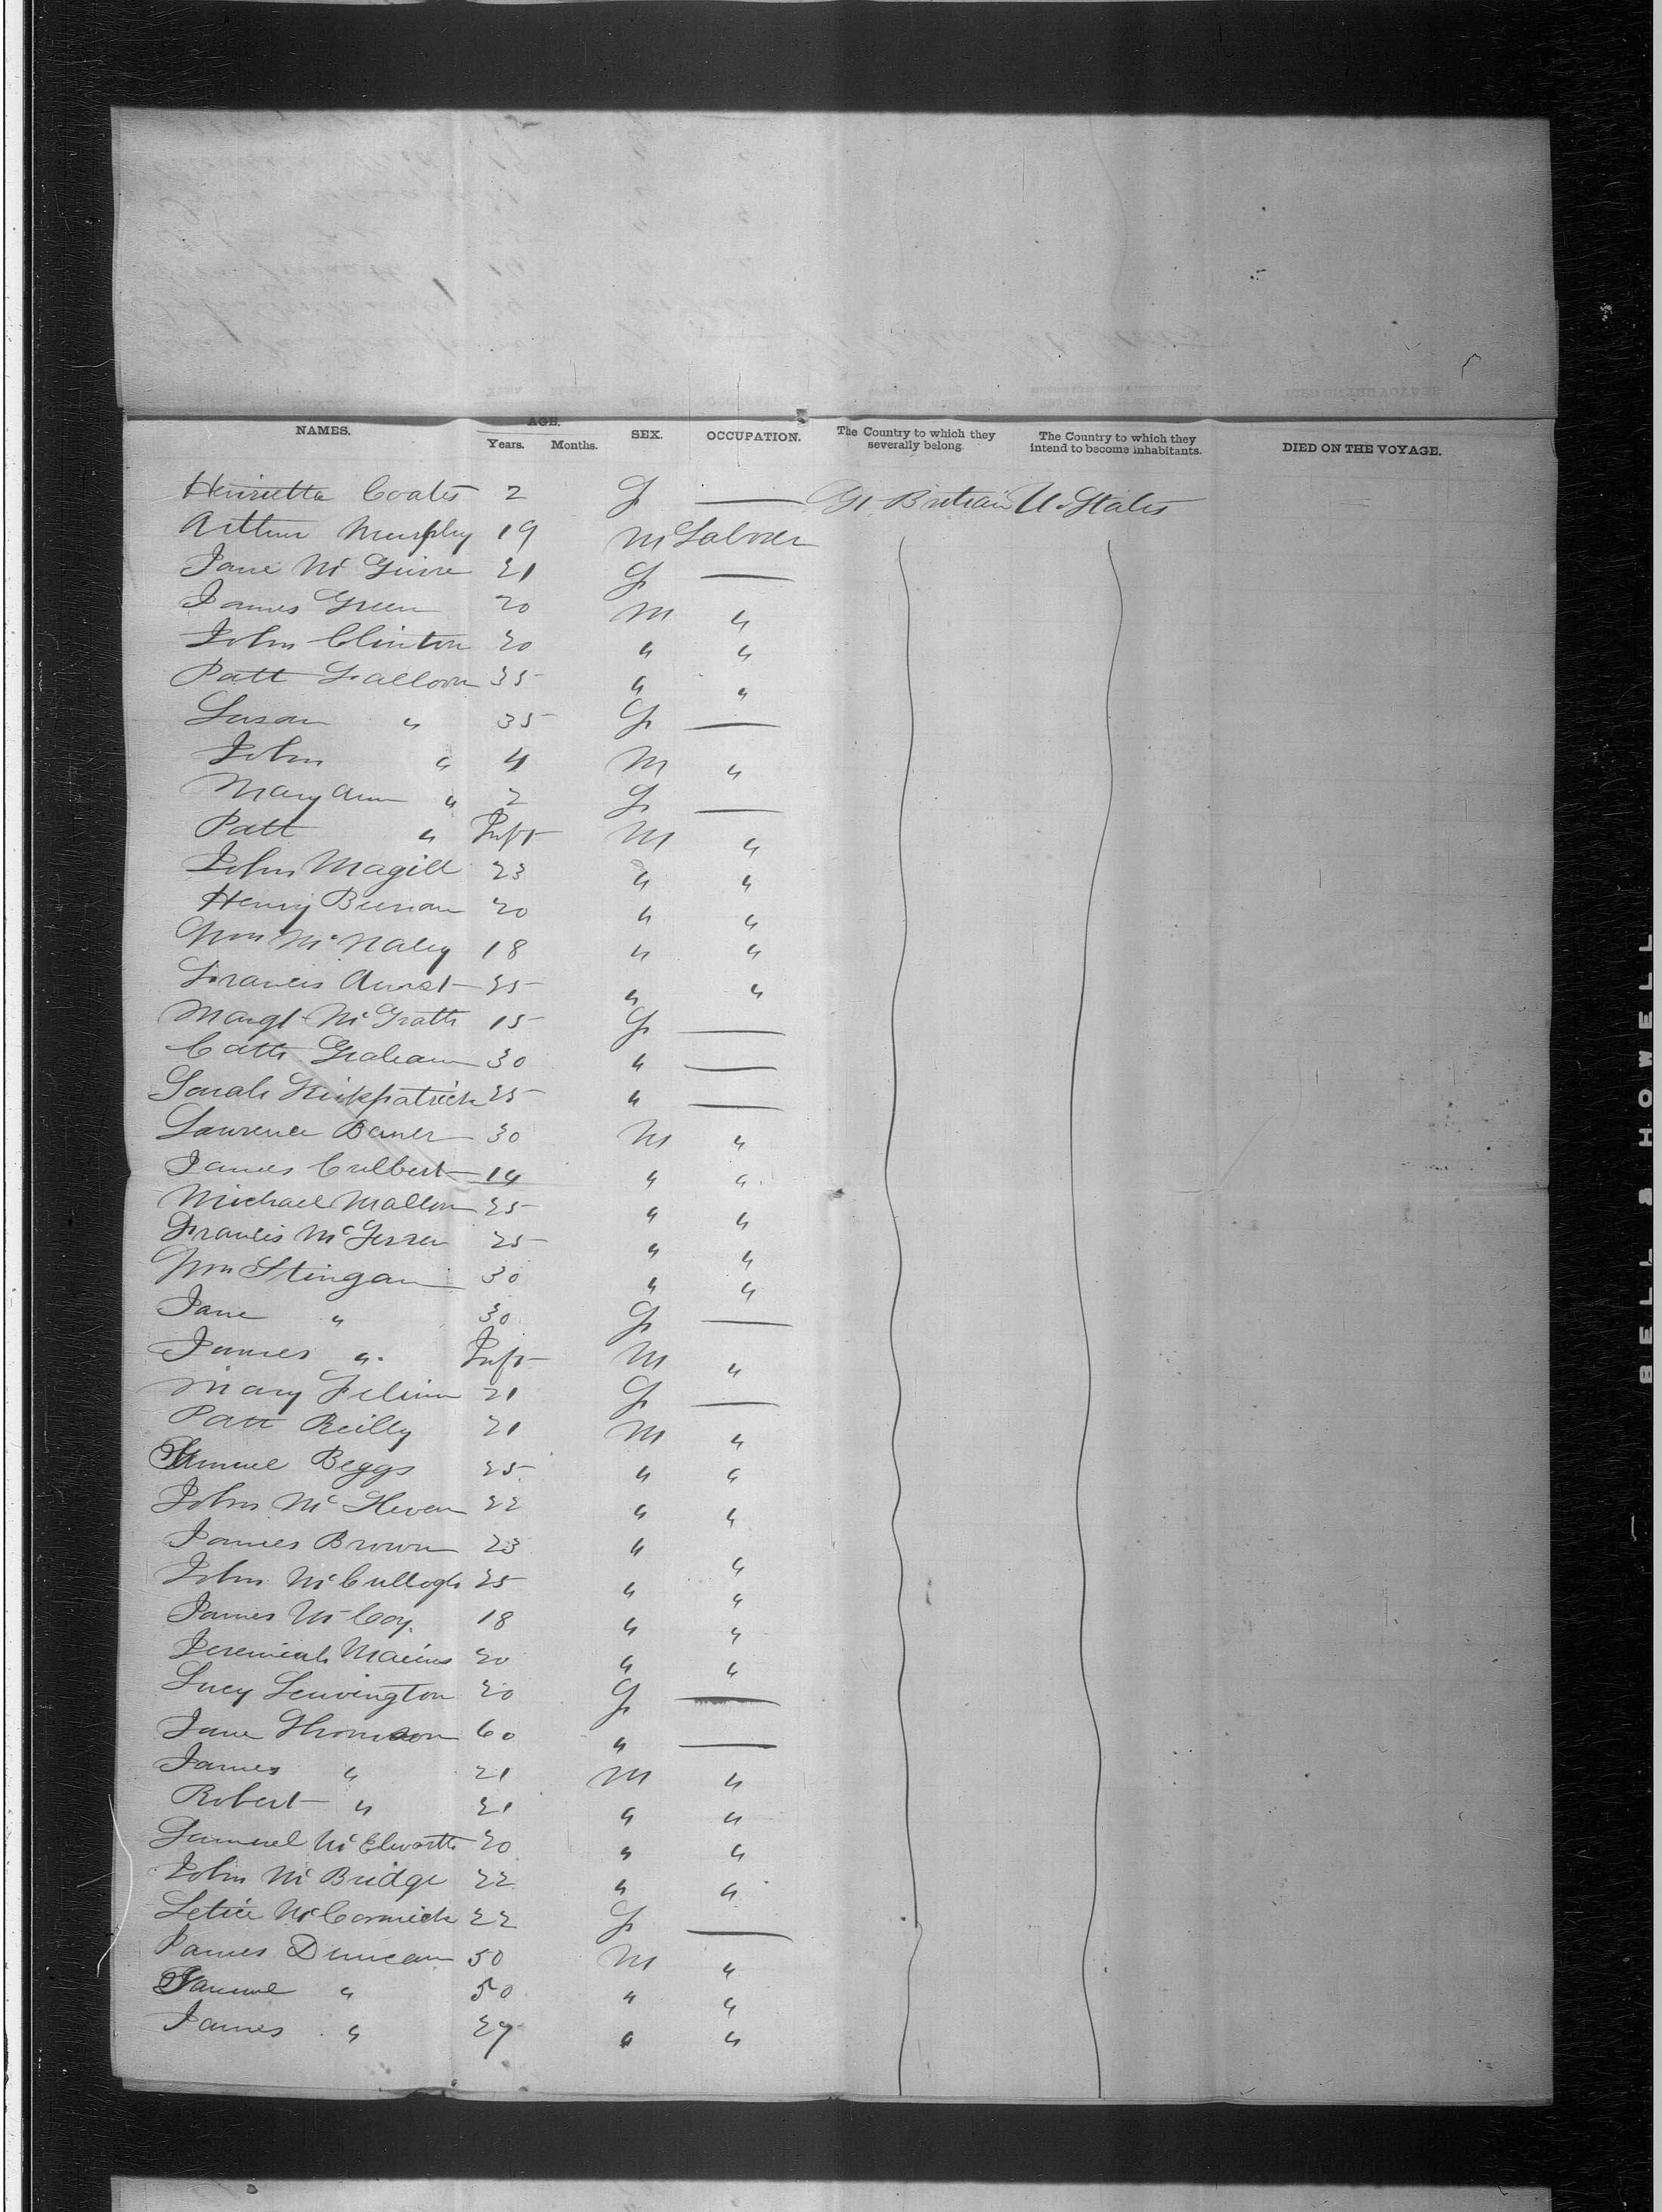 NAMES. AGE. Years. Months. SEX. OCCUPATION. The Country to which they severally belong. The Country to which they intend to become inhabitants. DIED ON THE VOYAGE.
Henrietta Coates 2 F — Gt. Britain U. States
Arthur Murphy 19 M Laborer
Jane McGuire 21 F —
James Green 20 M "
John Clinton 20 " "
Patt Falloon 35 " "
Susan " 35 F —
John " 4 M "
Mary Ann " 2 F —
Patt " Inft M "
John Magill 23 " "
Henry 20 " "
Wm McNaley 18 " "
Francis 25 " "
Margt McGrath 15 F —
Cath Graham 30 " —
Sarah Kirkpatrick 25 " —
Lawrence 30 M "
James Culbert 14 " "
Michael Mallon 25 " "
Francis 25 " "
Wm Stingan 30 " "
Jane " 30 F —
James " Inft M "
Mary 21 F —
Patt Reilly 21 M "
Samuel Beggs 25 " "
John 22 " "
James Brown 23 " "
John McCullogh 25 " "
James McCoy 18 " "
Jeremiah 20 " "
Lucy 20 F —
Jane Thomson 60 " —
James " 21 M "
Robert " 21 " "
Samuel McElworth 20 " "
John McBridge 22 " "
Letice McCormick 22 F —
James Duncan 50 M "
Samuel " 50 " "
James " 27 " "
BELL & HOWELL